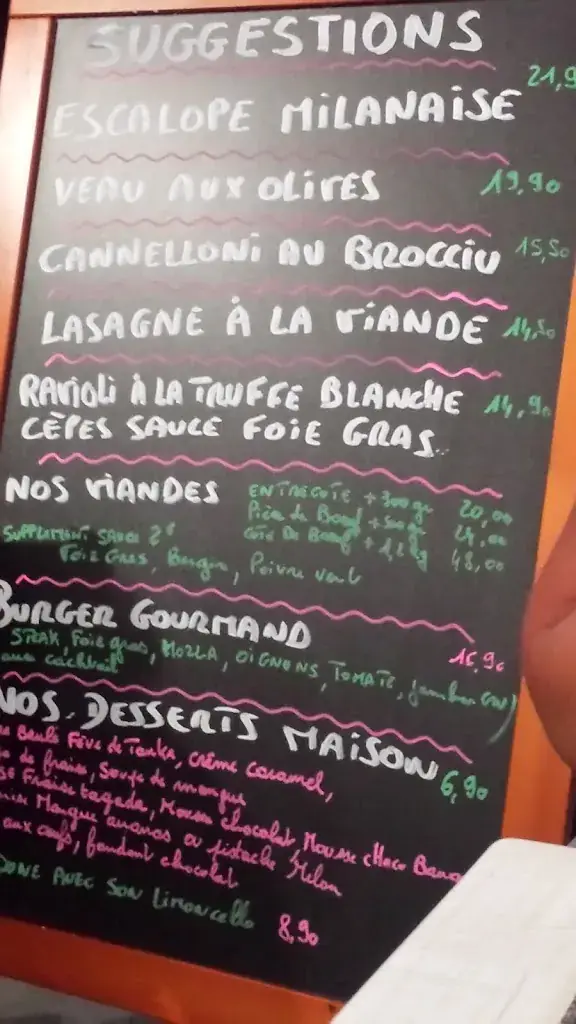 SUGGESTIONS
ESCALOPE MILANAISE 21,9
VEAU AUX OLIVES 19,90
CANNELLONI AU BROCCIU 15,50
LASAGNE À LA VIANDE 14,50
RAVIOLI À LA TRUFFE BLANCHE 14,90
CÈPES SAUCE FOIE GRAS
NOS VIANDES ENTRECOTE +300gr 20,00
Pièce de Boeuf +500gr 24,00
SUPPLEMENT SAUCE 2€ Cote De Boeuf + 48,00
Foie Gras, Poivre vert
BURGER GOURMAND 16,90
STEAK, Foie gras, MOZZA, OIGNONS, TOMATE, jambon
NOS DESSERTS MAISON 6,90
Brulé Fève de Tonka, crème caramel,
de fraise, Soupe de mangue
Fraise tagada, Mousse chocolat, Mousse choco
Mangue ananas ou pistache Melon
aux oeufs, fondant chocolat
AVEC SON Limoncello 8,90